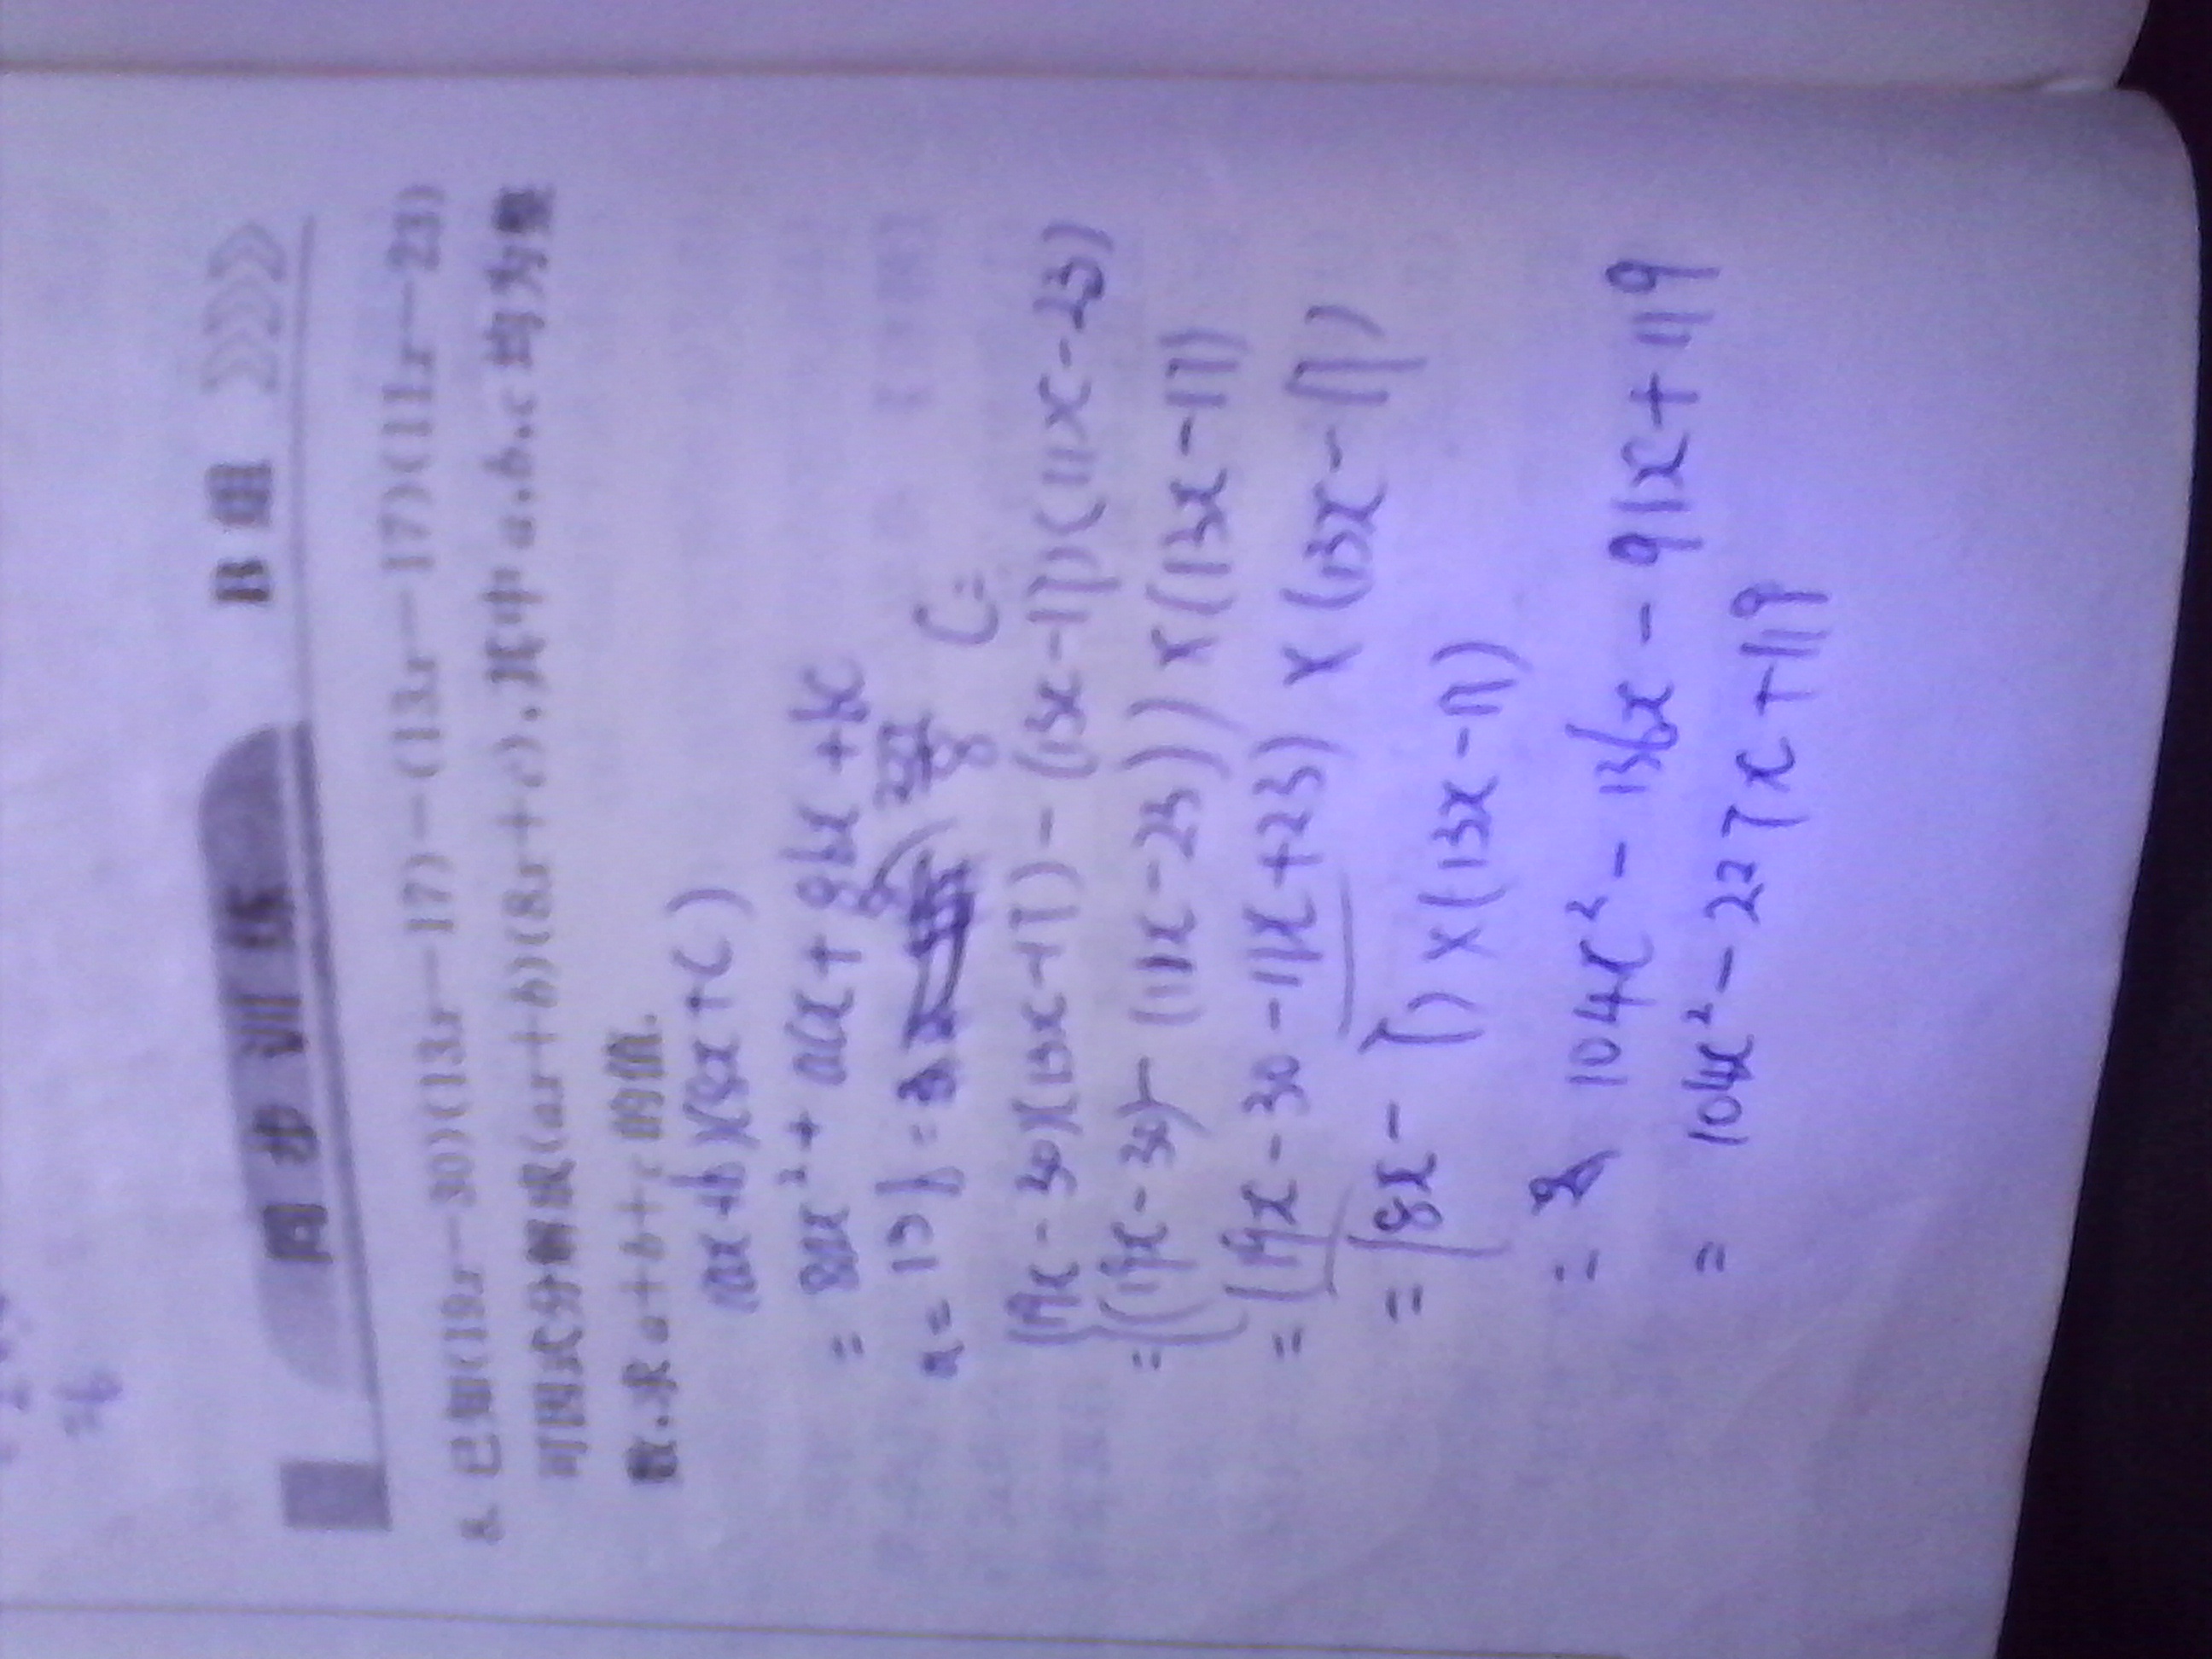 同步训练 B组
8. 已知(19x-30)(13x-17)-(13x-17)(11x-23)
可因式分解成(ax+b)(8x+c),其中a,b,c均为整
数,求a+b+c的值.
(ax+b)(8x+c)
= 8ax²+acx+8bx+bc
a=13 b= C=
(19x-30)(13x-17)-(13x-17)(11x-23)
=((19x-30)-(11x-23))×(13x-17)
=(19x-30-11x+23)×(13x-17)
=(8x-7)×(13x-17)
= 104x²-136x-91x+119
= 104x²-227x+119